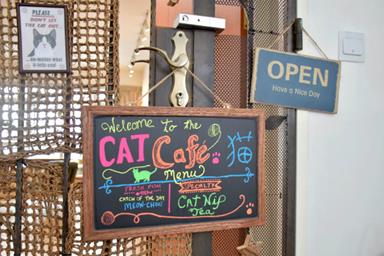 PLEASE
DON'T LET
THE CAT OUT
...no matter what
it tells you!
OPEN
Have a Nice Day
Welcome to the
CAT Café
Menu
FRESH FISH
CATCH OF THE DAY
MEOW-CHOW
SPECIALTY
CAT NIP
TEA